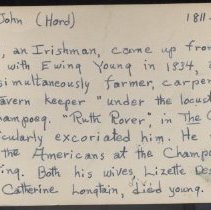 John (Hord) 1811-
, an Irishman, came up from
with Ewing Young in 1834,
simultaneously farmer, carpen
tavern keeper "under the locus
hampoeg. "Ruth Rover", in The G
icularly excoriated him. He
the Americans at the Champo
ing. Both his wives, Lizette Des
Catherine Longtain, died young.